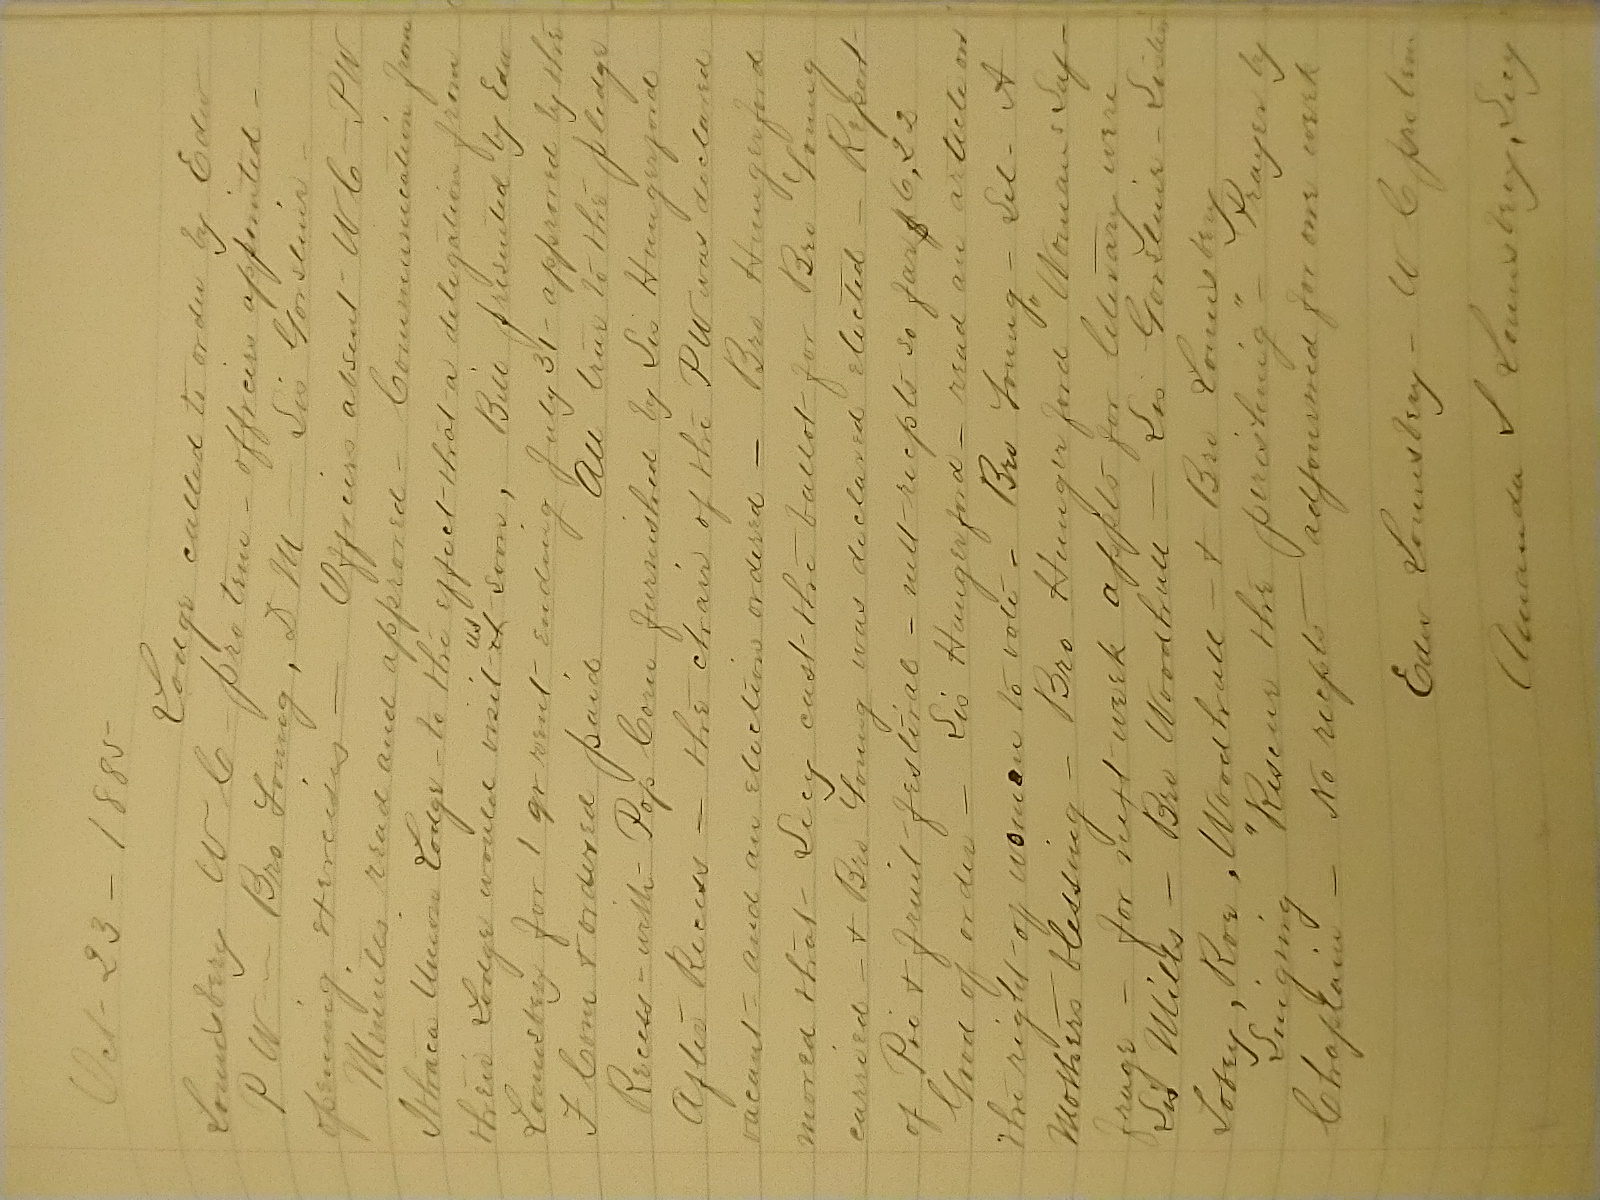 Oct - 23 - 1885 -
Lodge called to order by Edw
Lounsbery W C - pro tem - officers appointed -
P W - Bro Young, D M - Sis Gonsleir -
opening exercises - Officers absent - W C - P W
Minutes read and approved - Communication from
Ithaca Union Lodge - to the effect - that - a deligation from
their Lodge would visit us soon, Bill presented by Edw
Lounsbery for 1 qr rent - ending July 31 - approved by the
F Com & ordered paid All true to the pledge
Recess - with - Pop Corn furnished by Sis Hungerford
After Recess - the chair of the P W was declared
vacant - and an election ordered - Bro Hungerford
moved that - Secy cast - the ballot - for Bro Young
carried - & Bro Young was declared elected - Report -
of Pie & fruit - festival - nett - recpts so far $6,22
Good of order - Sis Hungerford - read an article on
"the right - of women to vote - Bro Young - Sel - A
Mothers blessing - Bro Hungerford "Womans Suf-
frage - for next - week appts for literary were
Sis Mills - Bro Woodhull - Sis Gonsleir - Sister
Lobey, Roe, Woodhull - & Bro Lounsbery
Singing "Rescue the perishing" - Prayer by
Chaplain - No recpts - adjourned for one week
Edw Lounsbery - W C pro tem
Amanda S Lounsbery, Secy